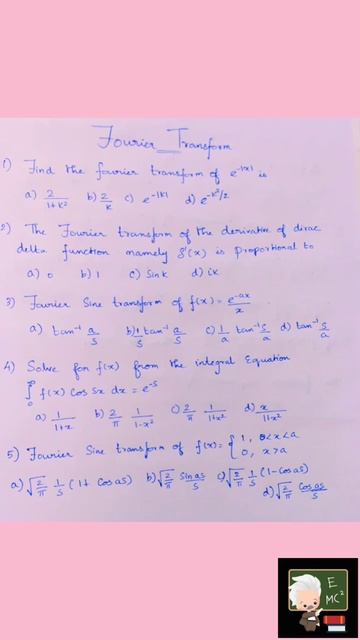 Fourier Transform
1) Find the fourier transform of e^-|x| is
a) 2/1+k² b) 2/k c) e^-|k| d) e^-k²/2
2) The Fourier transform of the derivative of dirac
delta function namely δ'(x) is proportional to
a) 0 b) 1 c) Sin k d) ik
3) Fourier Sine transform of f(x) = e^-ax/x
a) tan⁻¹ a/s b) tan⁻¹ a/s c) 1/a tan⁻¹ s/a d) tan⁻¹ s/a
4) Solve for f(x) from the integral Equation
∫₀^∞ f(x) Cos sx dx = e^-s
a) 1/1+x b) 2/π 1/1-x² c) 2/π 1/1+x² d) x/1+x²
5) Fourier Sine transform of f(x) = { 1, 0<x<a
0, x>a
a) √2/π 1/s (1+ Cos as) b) √2/π Sin as/s c) √2/π 1/s (1-Cos as)
d) √2/π Cos as/s
E =
MC²